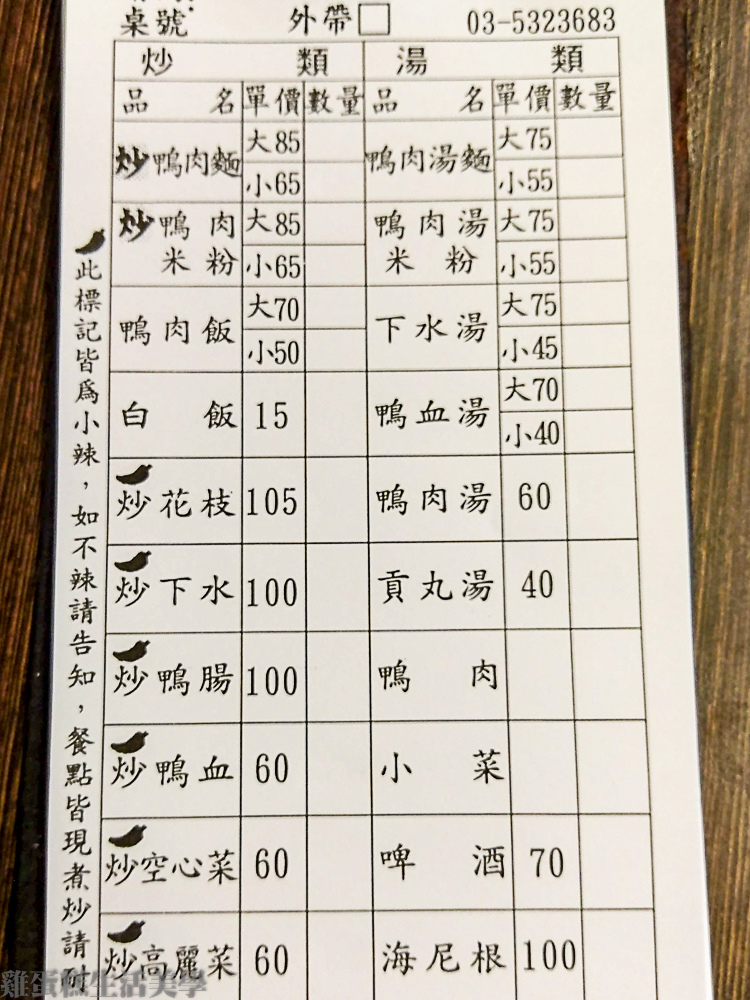 桌號 外帶 03-5323683
炒類 湯類
品名 單價 數量 品名 單價 數量
炒鴨肉麵 大85 小65 鴨肉湯麵 大75 小55
炒鴨肉米粉 大85 小65 鴨肉湯米粉 大75 小55
鴨肉飯 大70 小50 下水湯 大75 小45
白飯 15 鴨血湯 大70 小40
炒花枝 105 鴨肉湯 60
炒下水 100 貢丸湯 40
炒鴨腸 100 鴨肉
炒鴨血 60 小菜
炒空心菜 60 啤酒 70
炒高麗菜 60 海尼根 100
此標記皆為小辣，如不辣請告知，餐點皆現煮炒請耐
雞蛋糕生活美學